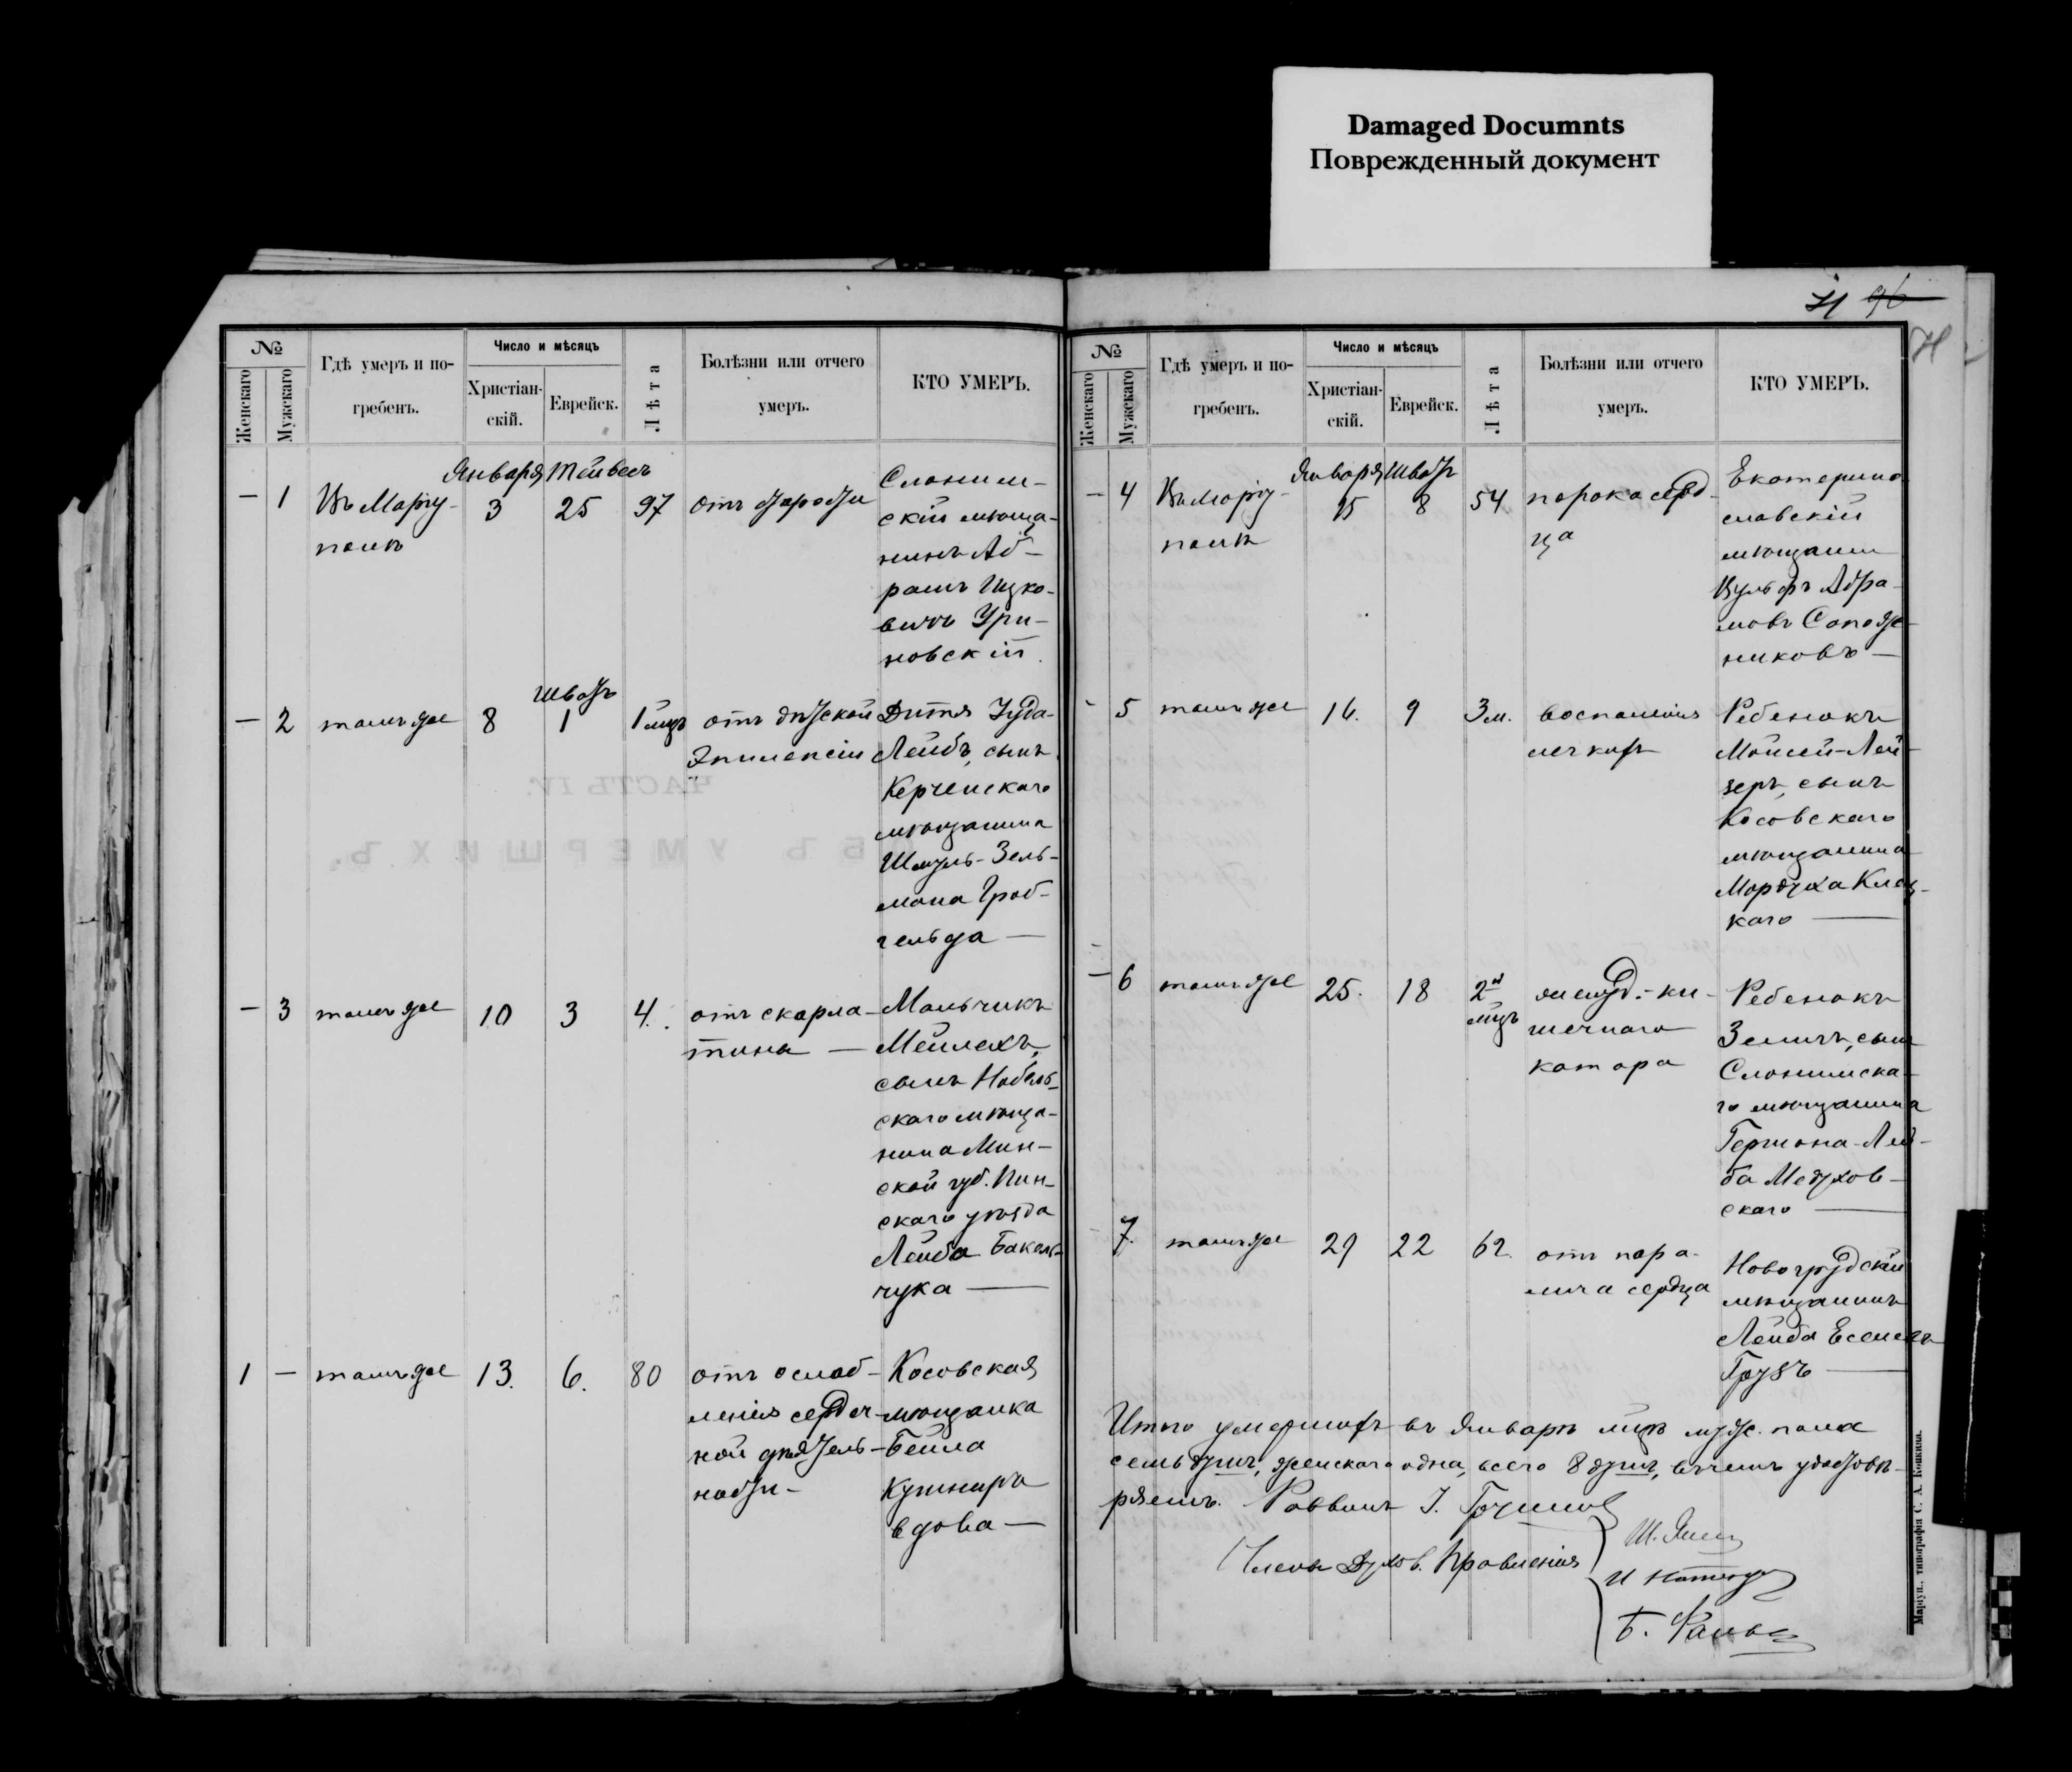 Damaged Documnts
Поврежденный документ
96
№
Женскаго
Мужскаго
Гдѣ умеръ и по-
гребенъ.
Число и мѣсяцъ
Христіан-
скій.
Еврейск.
Лѣта
Болѣзни или отчего
умеръ.
КТО УМЕРЪ.
Января Тейвесъ
— 1 Въ Мариу-
полѣ
3 25 97 отъ старости
Слоним-
скій мѣща-
нинъ Аб-
рамъ Ицко-
вичъ Ури-
новскій.
Шватъ
— 2 тамъ же 8 1 1 мцъ отъ дѣтской
Эпилепсіи
Дитя Іуда-
Лейбъ, сынъ
Керченскаго
мѣщанина
Шмуль-Зель-
мана Гроб-
гельда —
— 3 тамъ же 10 3 4. отъ скарла-
тины —
Мальчикъ
Мейлехъ,
сынъ Нобель-
скаго мѣща-
нина Мин-
ской губ. Пин-
скаго уѣзда
Лейба Бакаль-
чука —
1 — тамъ же 13. 6. 80 отъ ослаб-
ленія сердеч-
ной дѣятель-
ности-
Косовская
мѣщанка
Бейла
Кушниръ
вдова —
№
Женскаго
Мужскаго
Гдѣ умеръ и по-
гребенъ.
Число и мѣсяцъ
Христіан-
скій.
Еврейск.
Лѣта
Болѣзни или отчего
умеръ.
КТО УМЕРЪ.
Января Шватъ
— 4 Въ Мариу-
полѣ
15 8 54 порока серд-
ца
Екатерино
славскій
мѣщанин
Вульфъ Абра-
мовъ Сапож-
никовъ —
- 5 тамъ же 16. 9 3 м. воспаленія
легкихъ
Ребенокъ
Мойсей-Лей-
зеръ, сынъ
Косовскаго
мѣщанина
Мордуха Клец-
каго —
— 6 тамъ же 25. 18 2 мцъ желуд.-ки-
шечнаго
катара
Ребенокъ
Зеликъ, сын
Слонимска-
го мѣщанина
Гершона-Лей-
ба Медухов-
скаго —
7. тамъ же 29 22 62. отъ пара-
лича сердца
Новогрудскій
мѣщанинъ
Лейба
Грузъ —
Итого умершихъ въ Январѣ мцѣ муж. пола
семь душъ, женскаго одна, всего 8 душъ, въ чемъ удостовѣ-
ряемъ. Раввинъ І.
Члены Духов. Правленія
Маріуп., типографія С. А. Копкина.